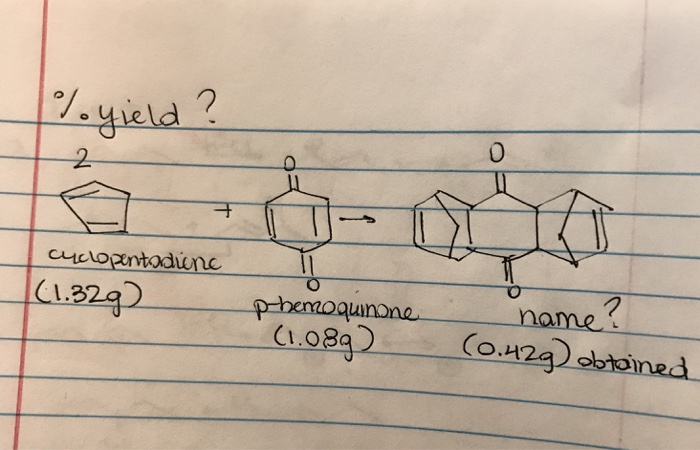 % yield ?
2
O
O
+
cyclopentadiene
(1.32g)
O
p-benzoquinone
(1.08g)
O
name?
(0.42g) obtained